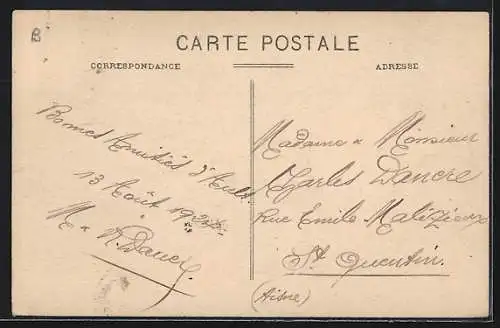 B
CARTE POSTALE
CORRESPONDANCE
ADRESSE
Bonnes Amitiés d'Ault
13 Août 192
M & R. Dancre
Madame & Monsieur
Charles Dancre
Rue Emile Malézieux
St Quentin
(Aisne)